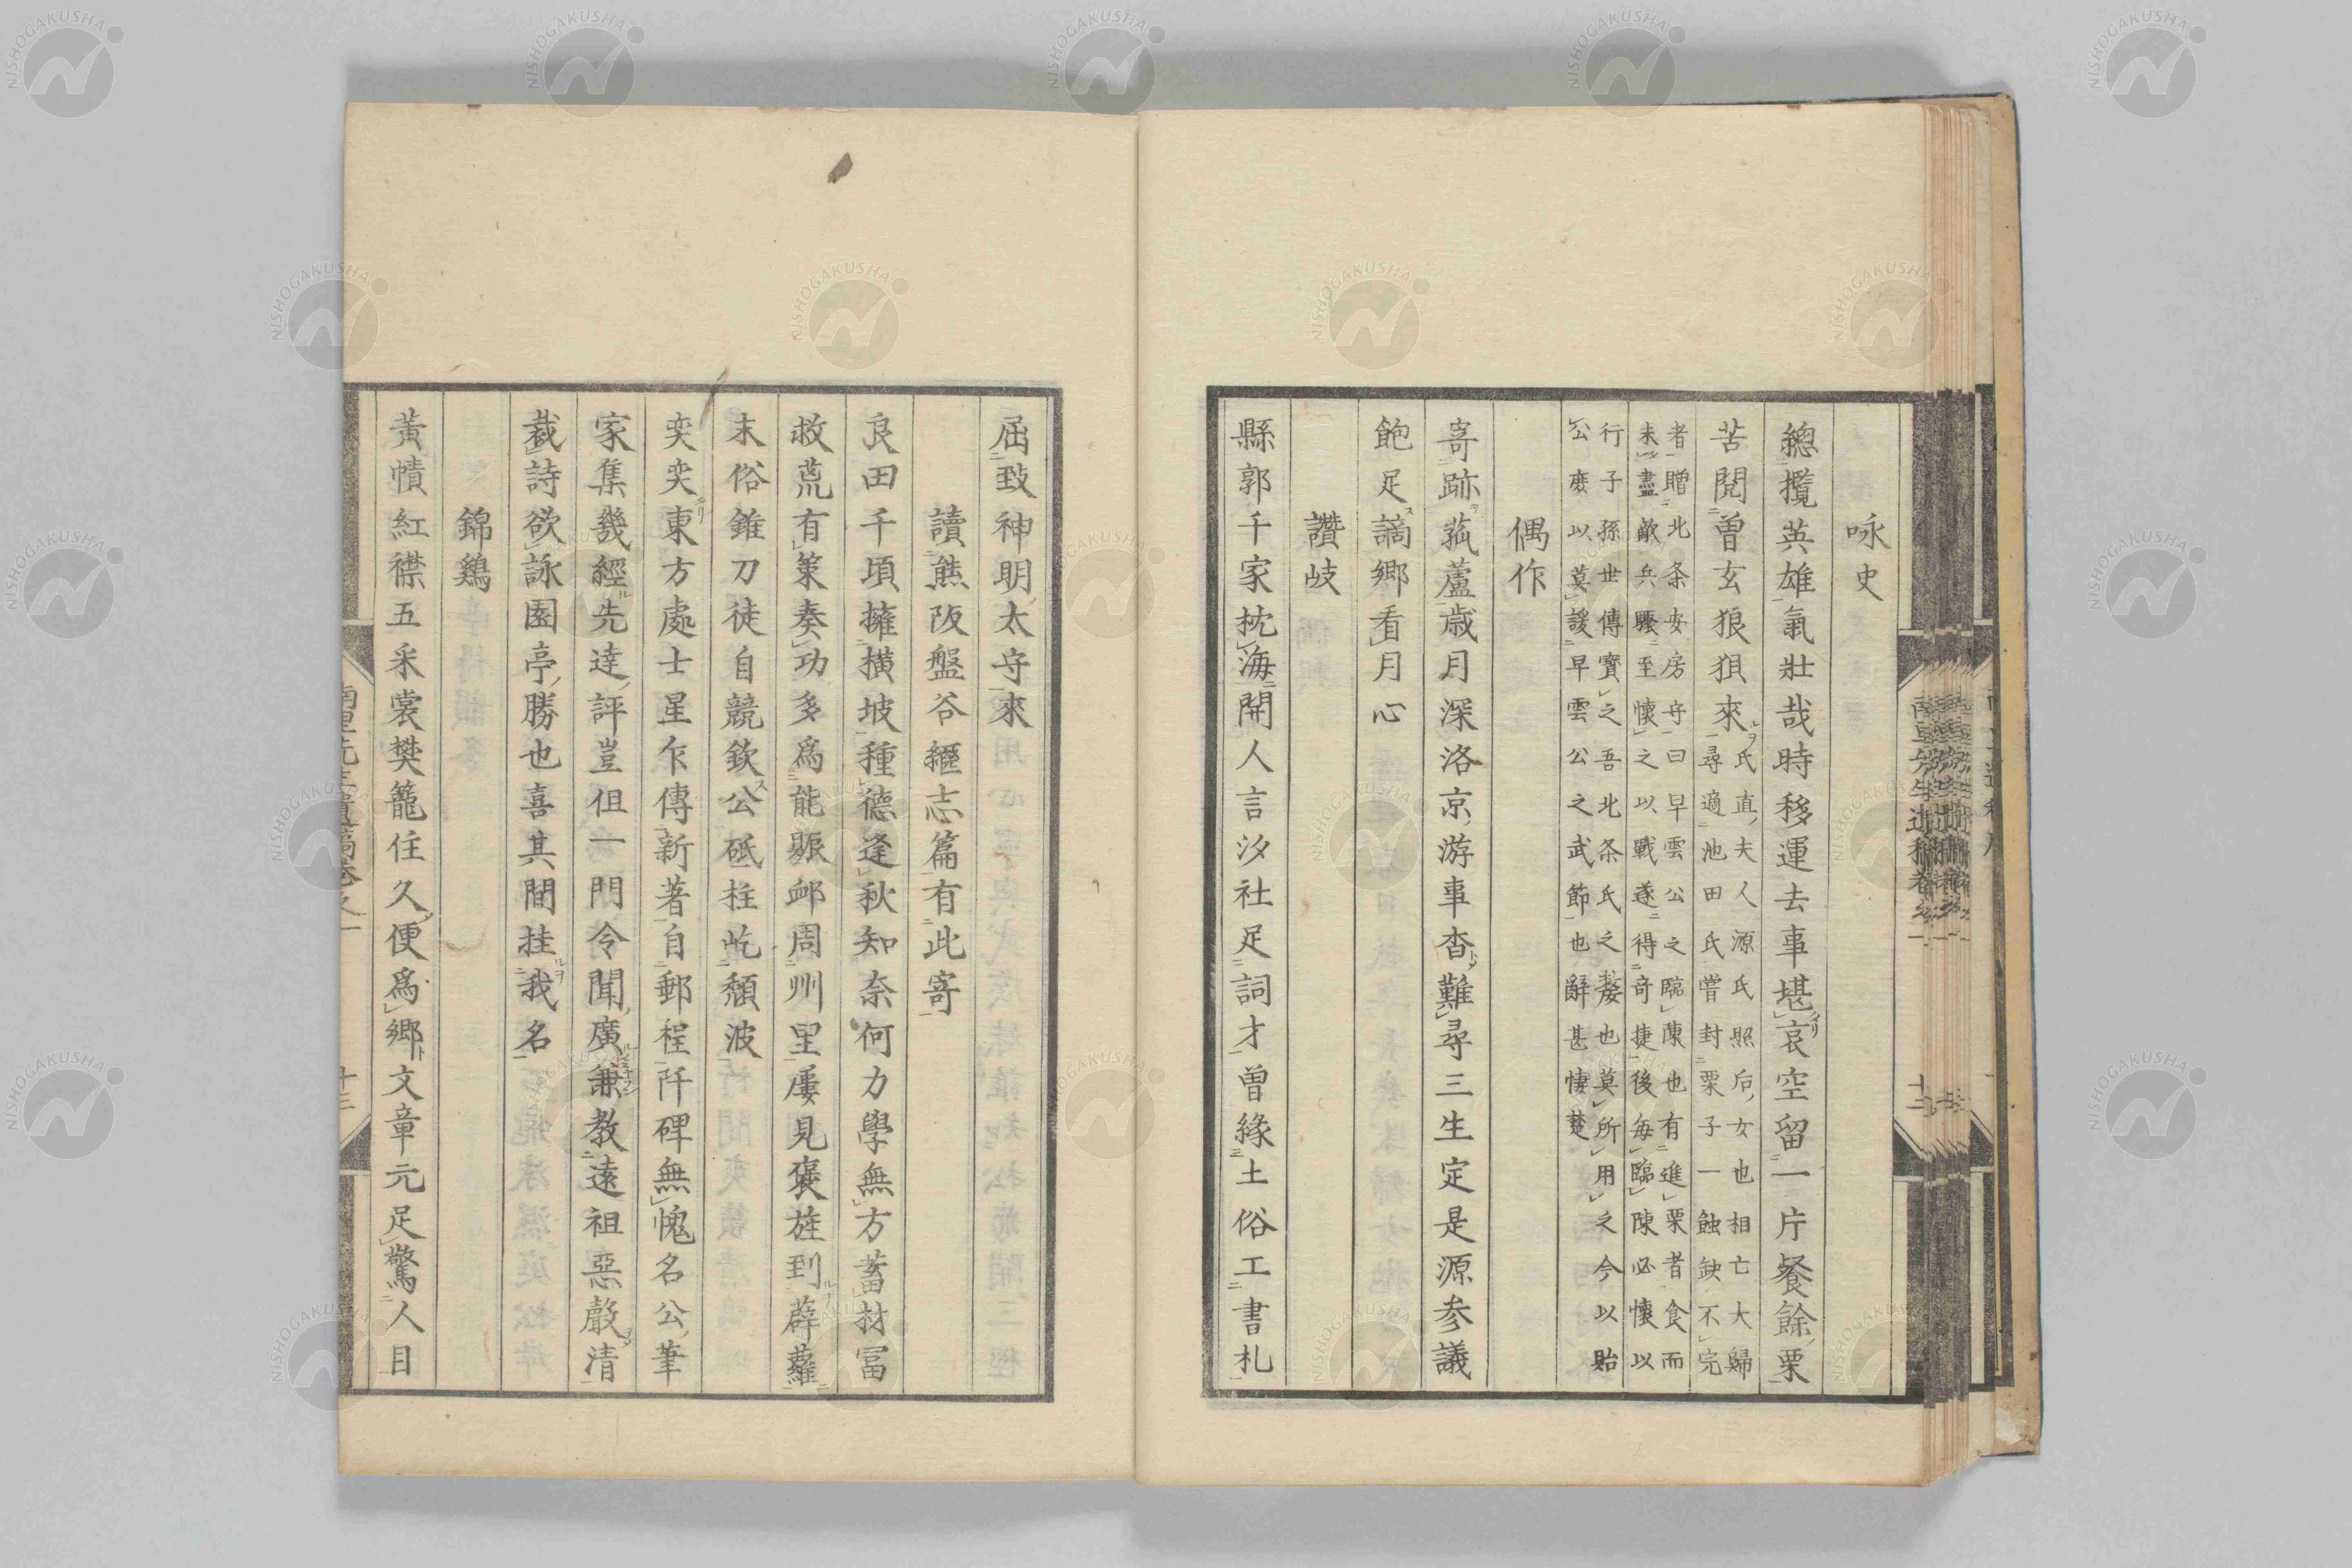 咏史
總攬英雄氣壯哉時移運去事堪哀空留一片餐餘栗
苦閱曾玄狼狽來
氏直夫人源氏照后女也相亡大歸
尋適池田氏嘗封栗子一蝕缺不完
者贈北条安房守曰早雲公之臨陳也有進栗者食而
未盡敵兵驟至懷之以戰遂得奇捷後每臨陳必懷以
行子孫世傳寶之吾北条氏之嫠也莫所用之今以貽
公庶以莫諼早雲公之武節也辭甚悽楚
偶作
寄跡菰蘆歲月深洛京游事杳難尋三生定是源參議
飽足謫鄉看月心
讚岐
縣郭千家枕海開人言汐社足詞才曾緣土俗工書札
屈致神明太守來
讀熊阪盤谷繼志篇有此寄
良田千頃擁橫坡種德逢秋知奈何力學無方蓄材冨
救荒有策奏功多爲能賑卹周州里屢見褒旌到薜蘿
末俗錐刀徒自競欽公砥柱屹頹波
奕奕東方處士星乍傳新著自郵程阡碑無愧名公筆
家集幾經先達評豈但一門令聞廣兼教遠祖惡聲清
裁詩欲詠園亭勝也喜其間挂我名
錦鷄
黃幘紅襟五采裳樊籠住久便爲鄉文章元足驚人目
十三
NISHOGAKUSHA